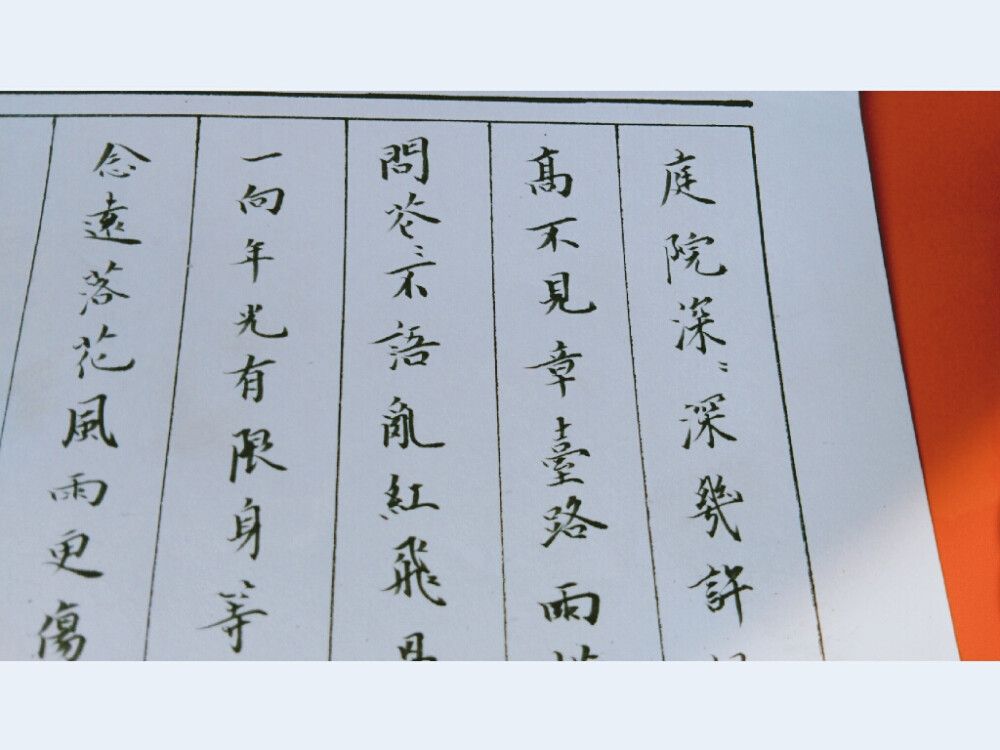 庭院深〻深幾許
高不見章臺路雨
問花〻不語亂紅飛
一向年光有限身等
念遠落花風雨更傷